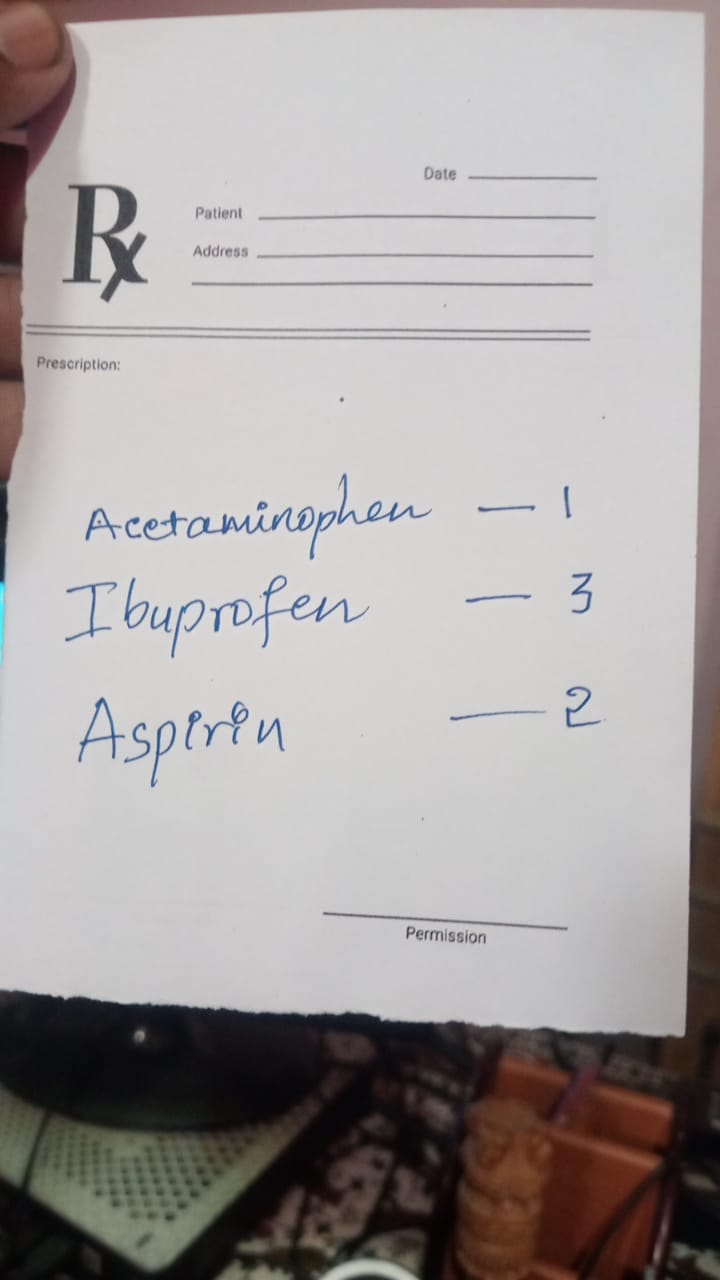 Rx
Date
Patient
Address
Prescription:
Acetaminophen — 1
Ibuprofen — 3
Aspirin — 2
Permission